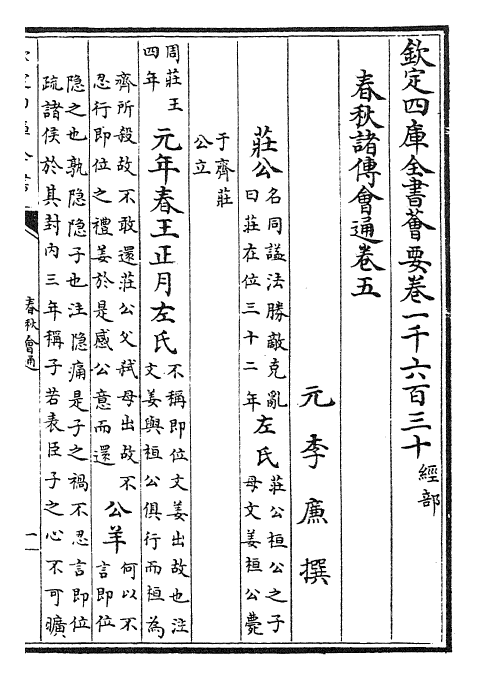 欽定四庫全書薈要卷一千六百三十
經部
春秋諸傳會通卷五
元 李廉 撰
莊公
名同謚法勝敵克亂
曰莊在位三十二年
左氏
莊公桓公之子
母文姜桓公薨
于齊莊
公立
周莊王
四年
元年春王正月左氏
不稱即位文姜出故也注
文姜與桓公俱行而桓為
齊所殺故不敢還莊公父弒母出故不
忍行即位之禮姜於是感公意而還
公羊
何以不
言即位
隱之也孰隱隱子也注隱痛是子之禍不忍言即位
疏諸侯於其封内三年稱子若表臣子之心不可曠
春秋會通
一